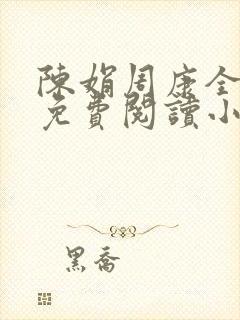 陳娟周康全
免費閱讀小
黑喬